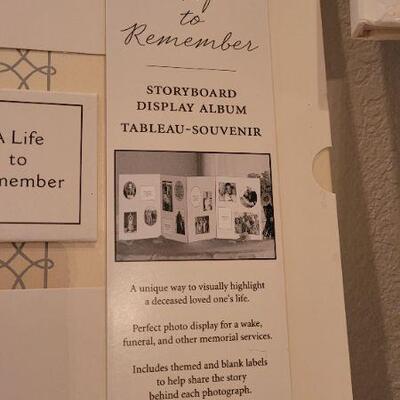 to
Remember
STORYBOARD
DISPLAY ALBUM
TABLEAU-SOUVENIR
A Life
to
member
A unique way to visually highlight
a deceased loved one's life.
Perfect photo display for a wake,
funeral, and other memorial services.
Includes themed and blank labels
to help share the story
behind each photograph.